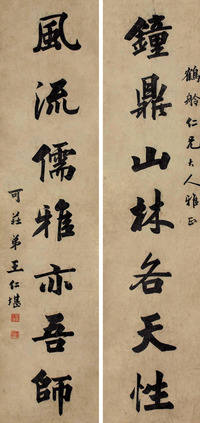 鶴舲仁兄大人雅正
鐘鼎山林各天性
風流儒雅亦吾師
可莊弟王仁堪